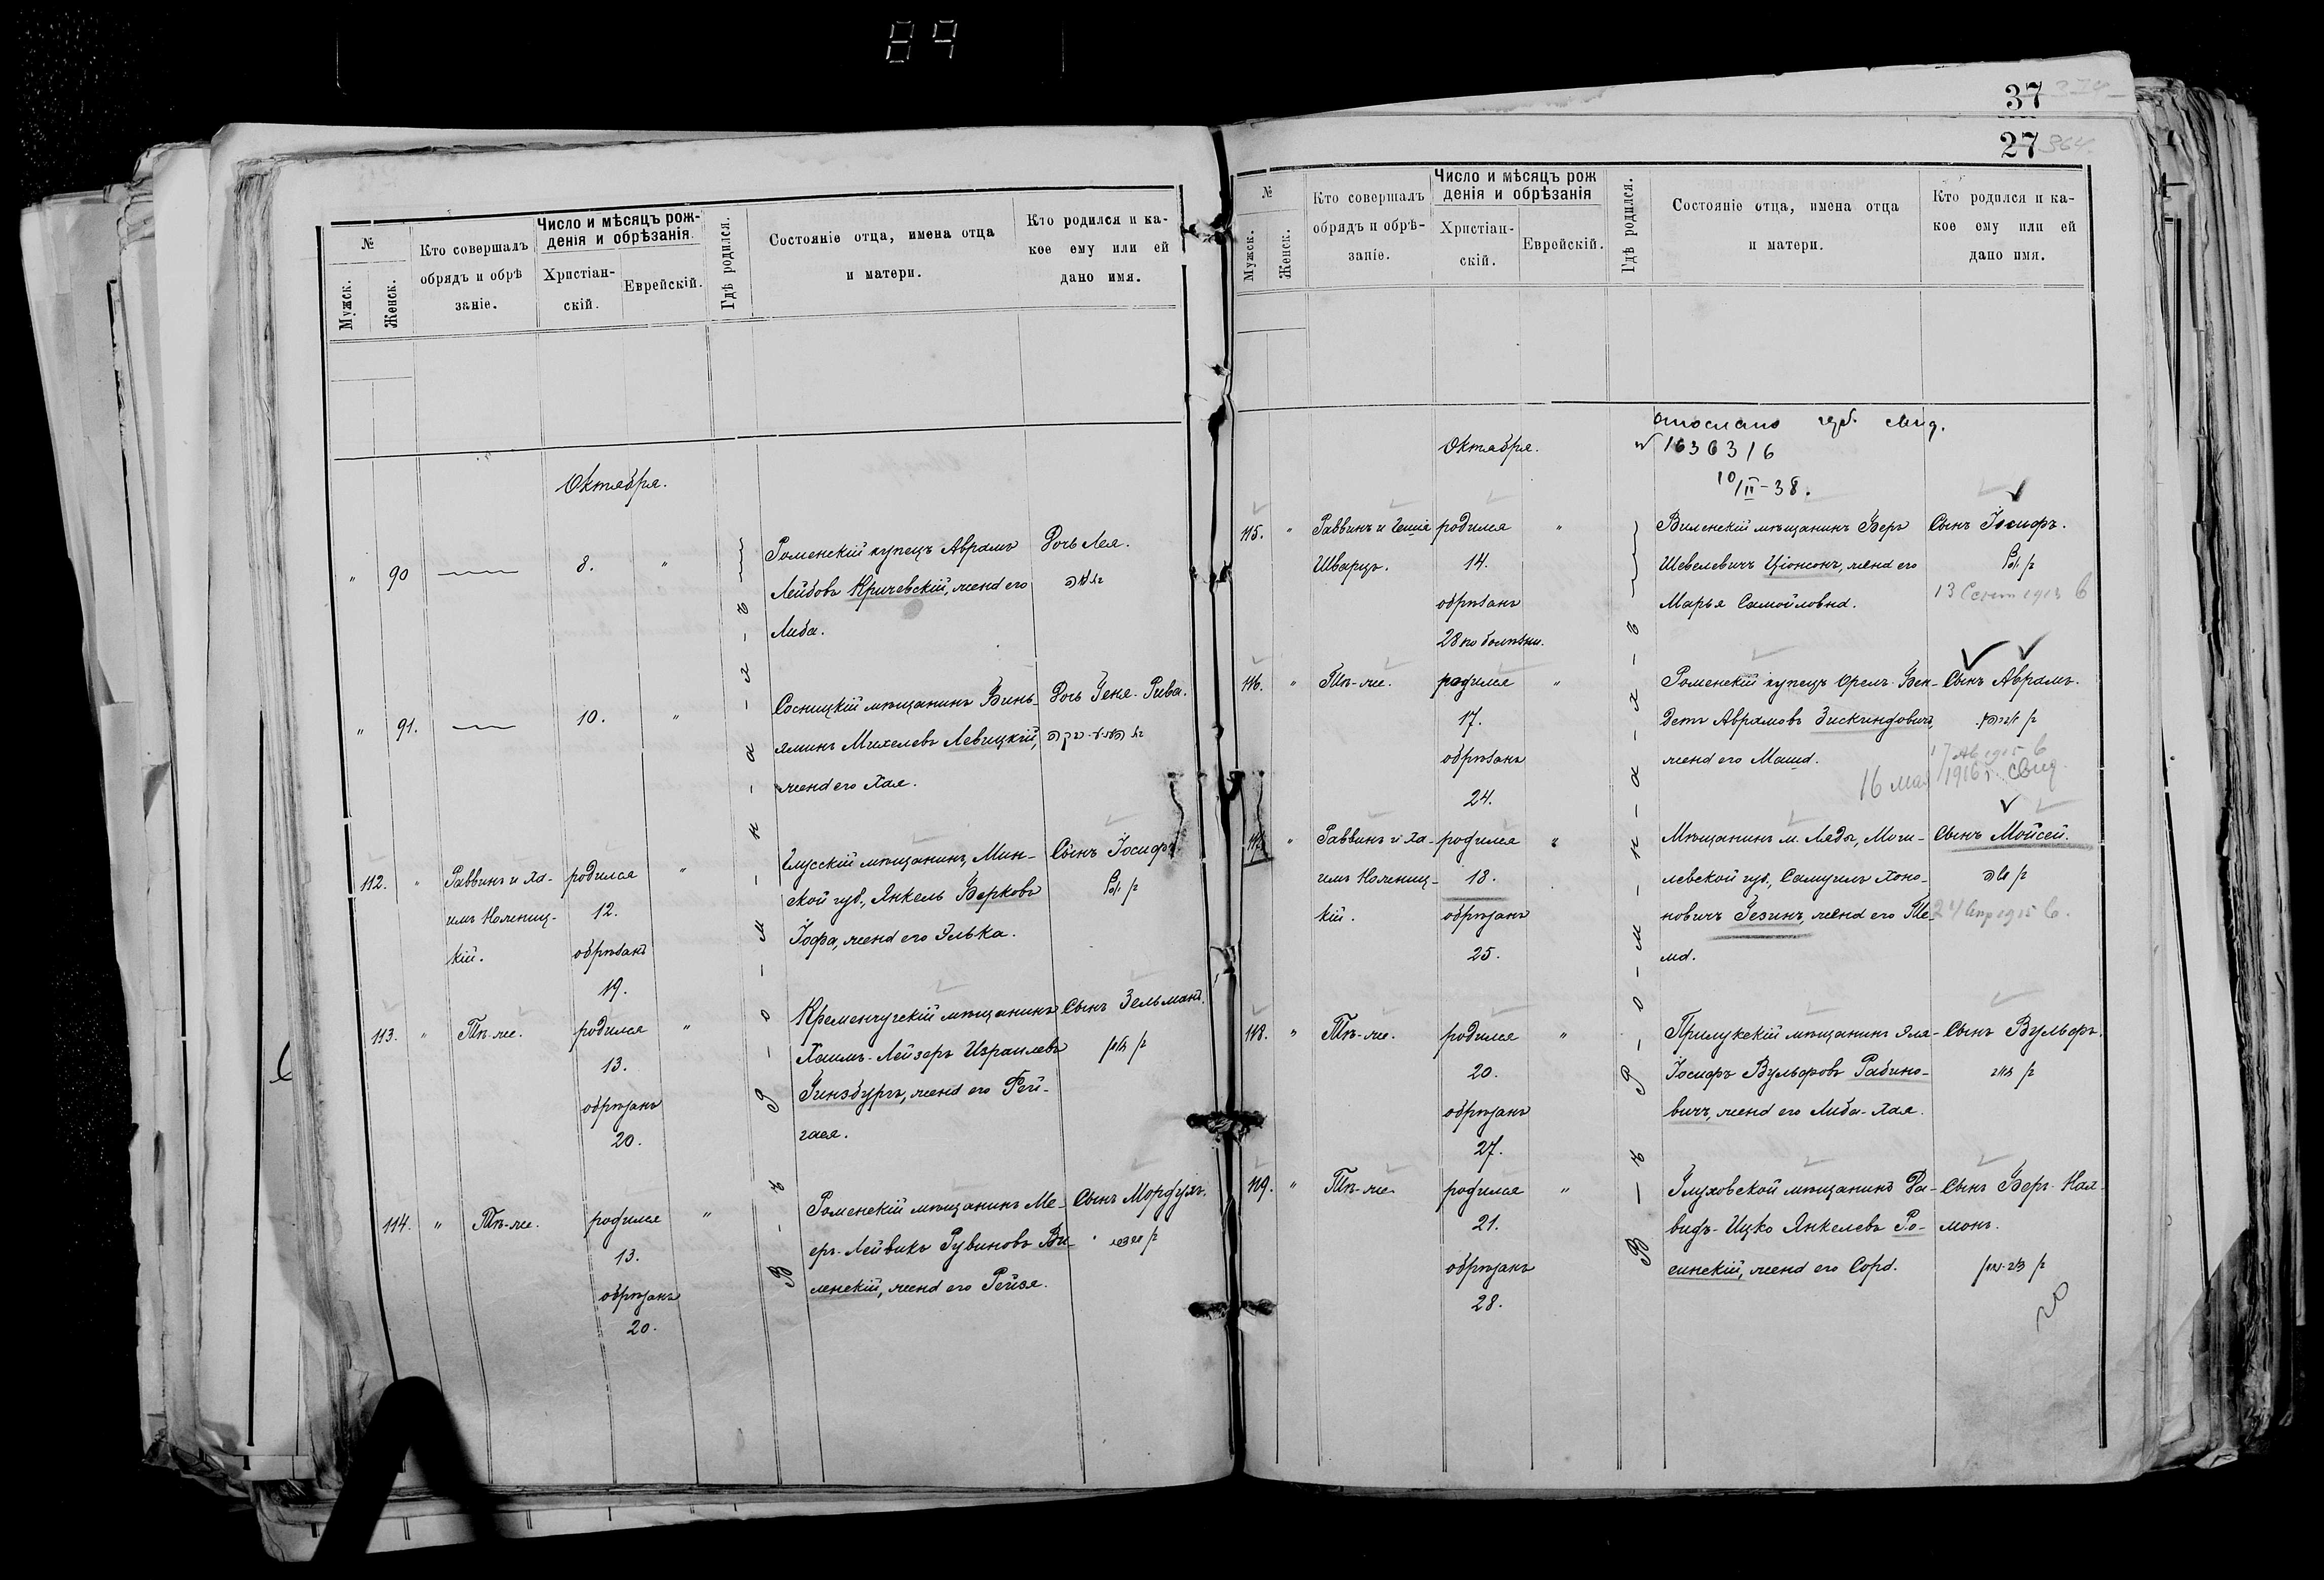 89
№
Мужск.
Женск.
Кто совершалъ
обрядъ и обрѣ
заніе.
Число и мѣсяцъ рож-
денія и обрѣзанія.
Христіан-
скій.
Еврейскій.
Гдѣ родился.
Состояніе отца, имена отца
и матери.
Кто родился и ка-
кое ему или ей
дано имя.
Октября.
В-ъ Р-о-м-н-а-х-ъ
" 90 8. "
Роменскій купецъ Абрамъ
Лейбовъ Кричевскій, жена его
Либа.
Дочь Лея.
" 91. 10. "
Сосницкій мѣщанинъ Бинь-
яминъ Михелевъ Левицкій,
жена его Хая.
Дочь Геня-Рива.
112. "
Раввинъ и Ха-
имъ
кій.
родился
12.
обрѣзанъ
19.
"
Глусскій мѣщанинъ, Мин-
ской губ., Янкель Берковъ
Іофа, жена его Элька.
Сынъ Іосифъ.
113. "
Тѣ-же.
родился
13.
обрѣзанъ
20.
"
Кременчугскій мѣщанинъ
Хаимъ-Лейзеръ Израилевъ
Гинзбургъ, жена его Рей-
гася.
Сынъ Зельманъ.
114. "
Тѣ-же.
родился
13.
обрѣзанъ
20.
"
Роменскій мѣщанинъ Ме-
еръ-Лейвикъ Рувиновъ Ви-
ленскій, жена его Рейзя.
Сынъ Мордухъ.
37
27 364
№
Мужск.
Женск.
Кто совершалъ
обрядъ и обрѣ-
заніе.
Число и мѣсяцъ рож
денія и обрѣзанія
Христіан-
скій.
Еврейскій.
Гдѣ родился.
Состояніе отца, имена отца
и матери.
Кто родился и ка-
кое ему или ей
дано имя.
Октября.
В-ъ Р-о-м-н-а-х-ъ
отослано свид.
№ 1636316
10/II-38.
115. "
Раввинъ и Гешія
Шварцъ.
родился
14.
обрѣзанъ
28 по болѣзни.
"
Виленскій мѣщанинъ Беръ
Шевелевичъ Ціонсонъ, жена его
Марья Самойловна.
Сынъ Іосифъ.
13 Сент 1913 в
116. "
Тѣ-же.
родился
17.
обрѣзанъ
24.
"
Роменскій купецъ Орелъ-Бен-
детъ Абрамовъ Зискиндовичъ,
жена его Маша.
Сынъ Абрамъ.
16 мая 1916 г. свид.
117. "
Раввинъ и Ха-
имъ
кій.
родился
18.
обрѣзанъ
25.
"
Мѣщанинъ м. Ляды, Моги-
левской губ., Самуилъ Хоно-
новичъ Гезинъ, жена его Те-
ма.
Сынъ Мойсей.
1915 в.
118. "
Тѣ-же.
родился
20.
обрѣзанъ
27.
"
Прилукскій мѣщанинъ Эля-
Іосифъ Вульфовъ Рабино-
вичъ, жена его Либа-Хая.
Сынъ Вульфъ.
119. "
Тѣ-же
родился
21.
обрѣзанъ
28.
"
Глуховской мѣщанинъ Да-
видъ-Ицко Янкелевъ Ро-
синскій, жена его Сора.
Сынъ Беръ-Кал-
монъ.